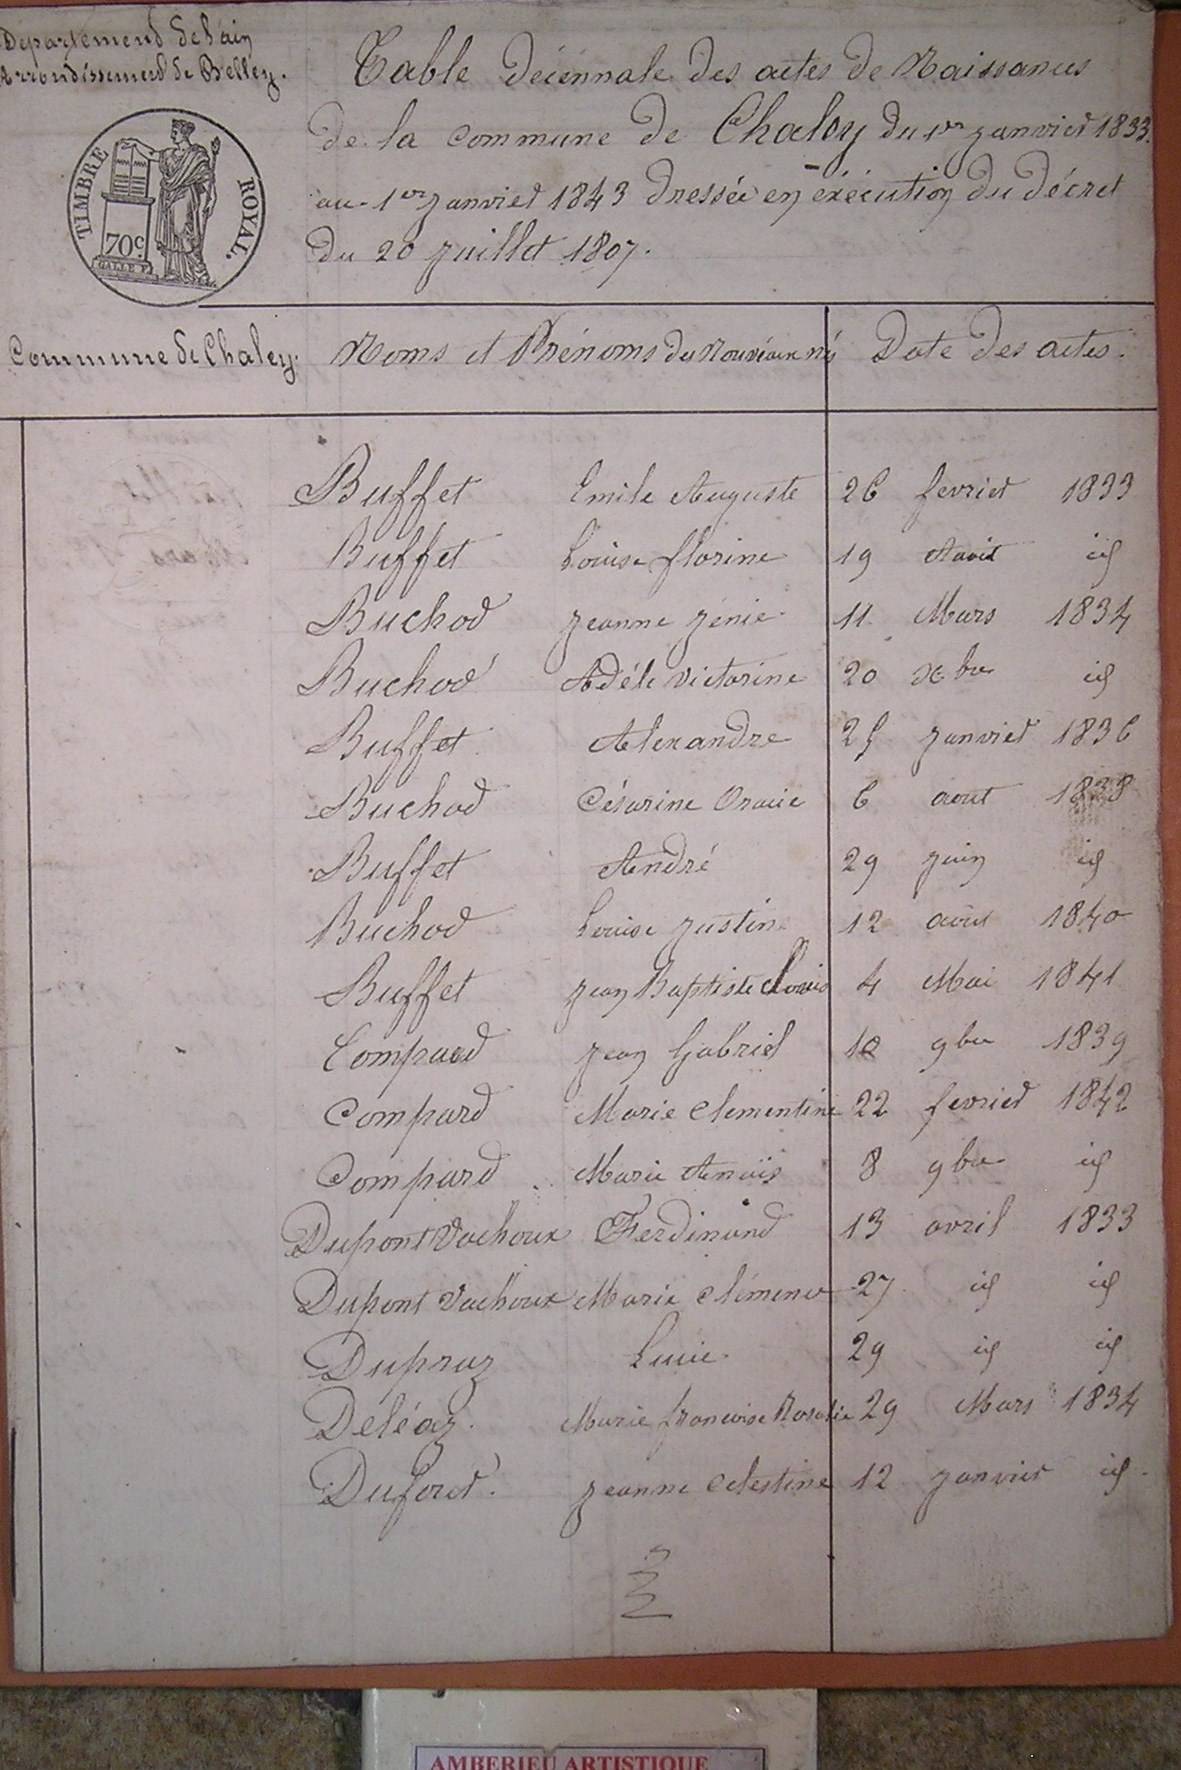 Département de l'ain
Arrondissement de Belley.
Table décennale des actes de Naissances
de la commune de Chaley du 1er janvier 1833.
au 1er janvier 1843 dressée en exécution du décret
du 20 juillet 1807.
TIMBRE ROYAL.
70c
GALLE F.
Commune de Chaley. Noms et Prénoms du Nouveaux nés Date des actes.
Buffet Emile Auguste 26 fevrier 1833
Buffet Louise florine 19 Aout id
Buchod jeanne jénie 11 Mars 1834
Buchod Adéle victorine 20 Xbre id
Buffet Alexandre 25 janvier 1836
Buchod Césarine 6 aout 1838
Buffet André 29 juin id
Buchod Louise justine 12 aout 1840
Buffet jean Baptiste Louis 4 Mai 1841
Compard jean Gabriel 10 9bre 1839
Compard Marie Clementine 22 fevrier 1842
Compard Marie Anaïs 8 9bre id
Dupont Vachoux Ferdinand 13 avril 1833
Dupont Vachoux Marie Clémence 27 id id
Dupraz Lucie 29 id id
Déléaz. Marie francoise Rosalie 29 Mars 1834
Dufour. jeanne Celestine 12 janvier id
AMBERIEU ARTISTIQUE